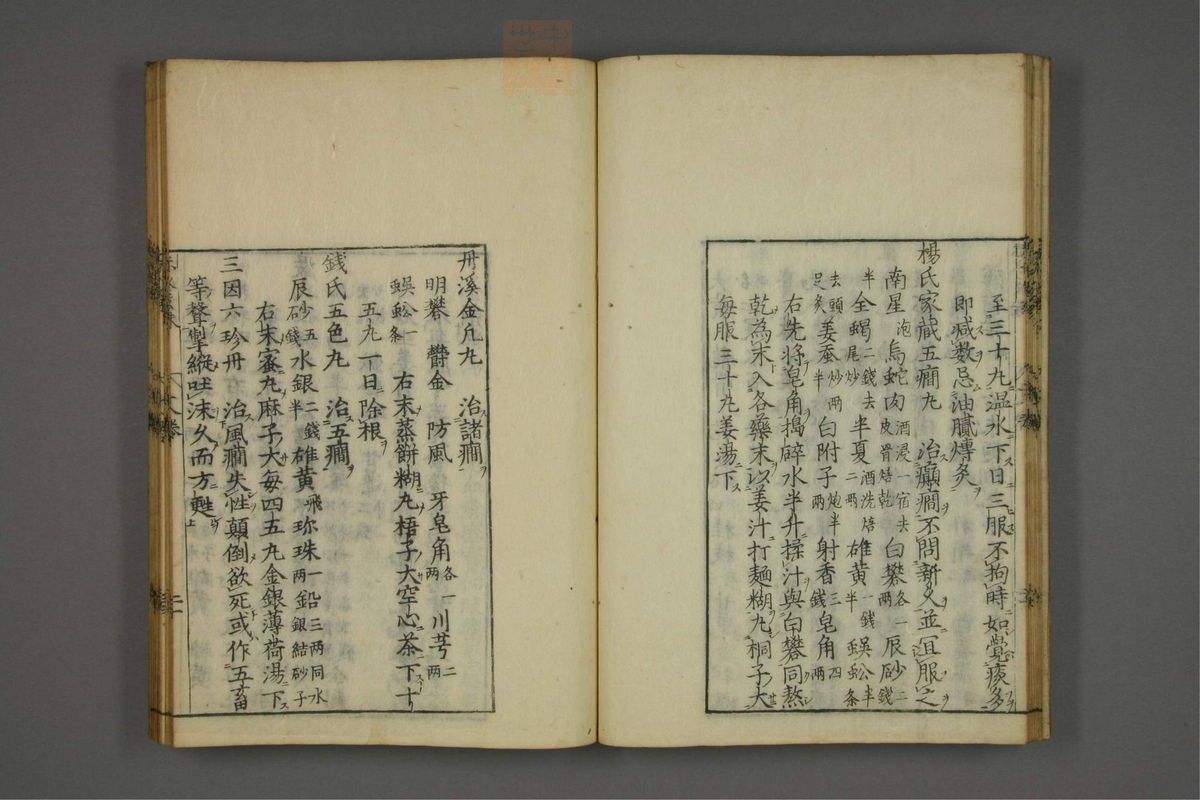 至三十丸温水下日三服不拘時如覺痰多
即减数忌油膩𤏙炙
楊氏家藏五癎丸 治癲癎不問新久並冝服之
南星炮 烏蛇肉酒浸一宿去皮骨焙乾 白礬各一两 辰砂二錢
半 全蝎二錢去尾炒 半夏酒洗焙二两 雄黄一錢半 蜈公半條
去頭足炙 姜蚕炒两半 白附子炮半两 射香三錢 皂角四两
右先將皂角搗碎水半升揉汁與白礬同熬
乾為末入各藥末以姜汁打麺糊丸桐子大
每服三十丸姜湯下
丹溪金凡丸 治諸癎
明礬 欝金 防風 牙皂角各一两 川芎二两
蜈蚣一條 右末蒸餅糊丸梧子大空心茶下十
五丸一日除根
錢氏五色丸 治五癎
辰砂五錢 水銀二錢半 雄黄飛 珎珠一两 鉛三两同水銀結砂子
右末蜜丸麻子大每四五丸金銀薄荷湯下
三因六珍丹 治風癎失性顛倒欲死或作五畜
等聲掣縱吐沫久而方甦